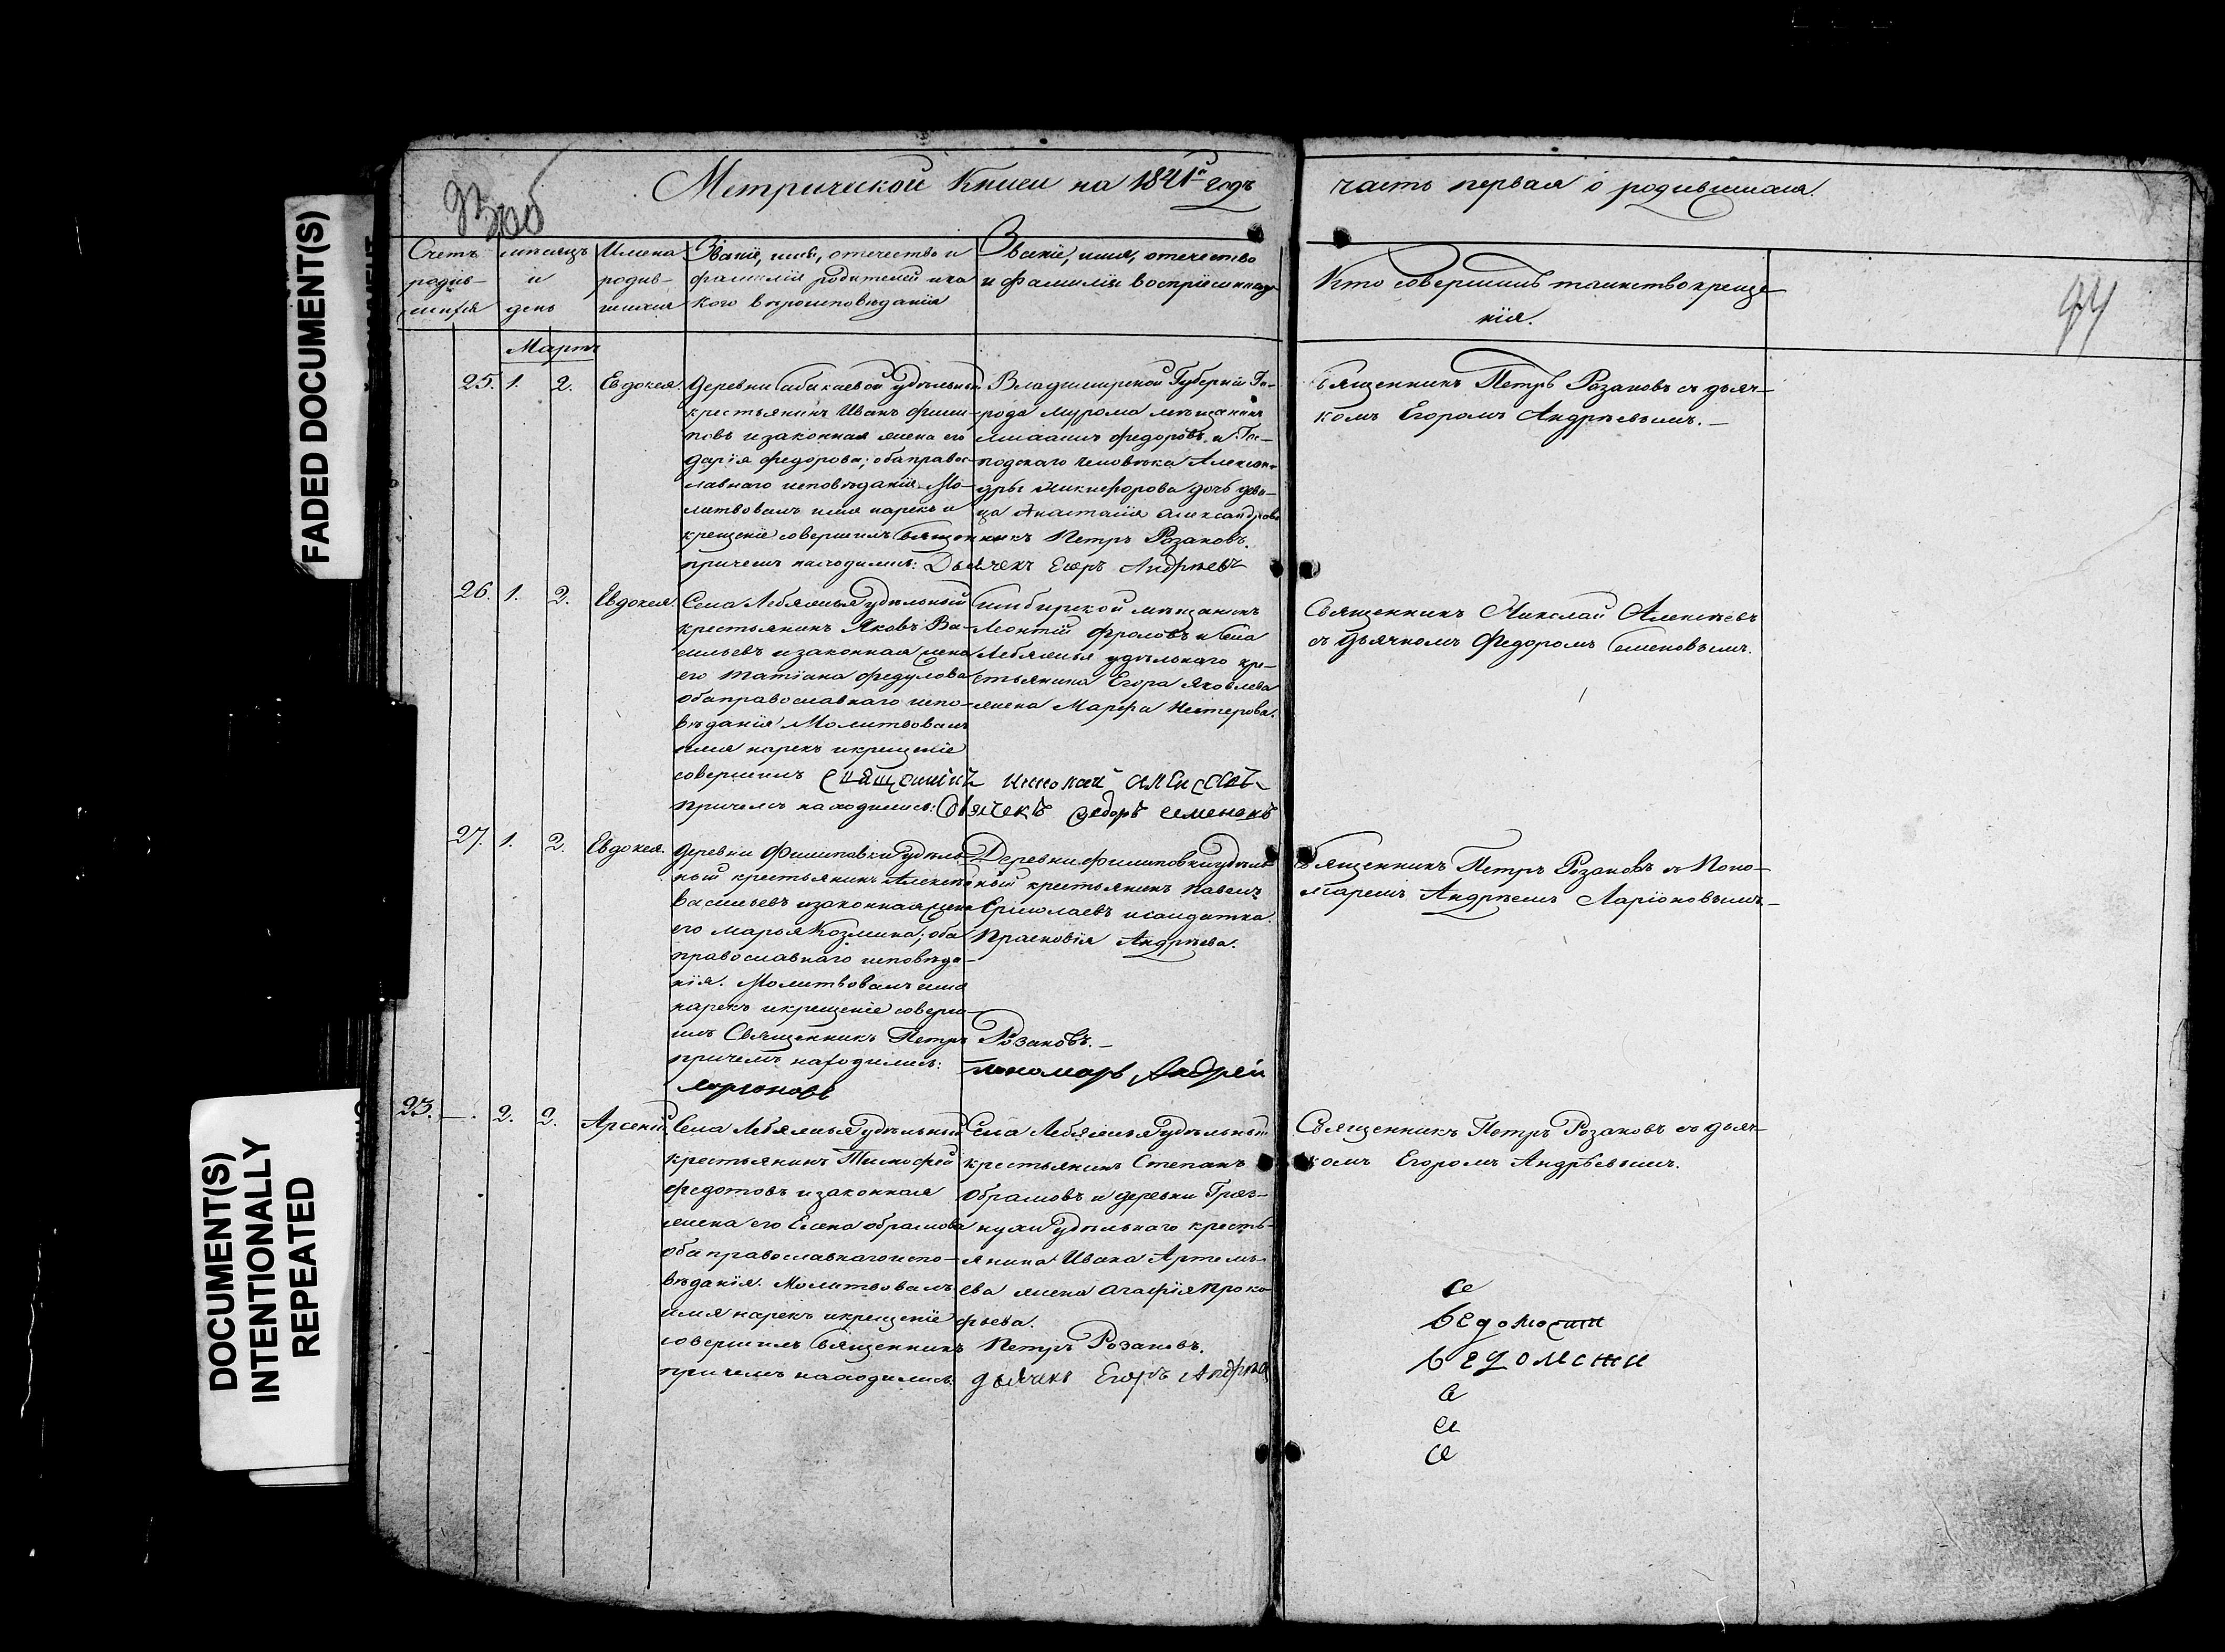 FADED DOCUMENT(S)
DOCUMENT(S)
INTENTIONALLY
REPEATED
93 об
Метрической Книги на 1841й годъ
часть первая о родившихся.
94
Счетъ
родив-
шихся
мѣсяцъ
и
день
Имена
родив-
шихся
Званіе, имя, отечество и
фамилія родителей и ка
кого вѣроисповѣданія
Званіе, имя, отечество
и фамилія воспріемниковъ
Кто совершилъ таинство креще
нія.
Мартъ
25. 1. 2. Евдокея.
Деревни удѣльный
крестьянинъ Иванъ Фили-
повъ и законная жена его
Дарія Федорова; оба правос-
лавнаго исповѣданія. Мо-
литвовалъ имя нарекъ и
крещеніе совершилъ Священникъ Петръ Розановъ.
причемъ находились: Дьячекъ Егоръ Андреевъ
Владимирской Губерніи Го-
рода Мурома мѣщанинъ
Федоровъ и Гос-
подскаго человѣка Алексан-
дры Никифорова дочь деви-
ца Анастасія Александрова
Священникъ Петръ Розановъ съ дьяч-
комъ Егоромъ Андрѣевымъ.
26. 1. 2. Евдокея.
Села Лебяжья удѣльный
крестьянинъ Яковъ Ва-
сильевъ и законная жена
его Татіана Федулова
оба православнаго испо-
вѣданія Молитвовалъ
имя нарекъ и крещеніе
совершилъ Священникъ Николай Алексеевъ
причемъ находились: Дьячекъ Федоръ Семеновъ
Симбирской мѣщанинъ
Леонтій Фроловъ и Села
Лебяжья удѣльнаго кре-
стьянина Егора Яковлева
жена Марфа Нестерова.
Священникъ Николай Алексѣевъ
съ дьячкомъ Федоромъ Семеновымъ.
27. 1. 2. Евдокея.
Деревни Филиповки удѣль-
ный крестьянинъ Алексѣй
Васильевъ и законная жена
его Марья Козмина; оба
православнаго исповѣда-
нія. Молитвовалъ имя
нарекъ и крещеніе совер-
илъ Священникъ Петръ Розановъ.
причемъ находились: пономарь Андрей
Ларионовъ
Деревни Филиповки удѣль-
ный крестьянинъ Павелъ
Ермолаевъ и солдатка
Прасковія Андрѣева.
Священникъ Петръ Розановъ съ Поно-
маремъ Андрѣемъ Ларіоновымъ.
23. —. 2. 2. Арсеній.
Села Лебяжья удѣльный
крестьянинъ Тимофей
Федотовъ и законная
жена его Елена Обрамова
оба православнаго испо-
вѣданія. Молитвовалъ
имя нарекъ и крещеніе
совершилъ Священникъ Петръ Розановъ.
причемъ находились дьячекъ Егоръ Андреевъ
Села Лебяжья удѣльный
крестьянинъ Степанъ
Обрамовъ и деревни Гряз-
нухи удѣльнаго кресть-
янина Ивана Артемь-
ева жена Агафія Проко
фьева.
Священникъ Петръ Розановъ съ дьяч-
комъ Егоромъ Андрѣевымъ.